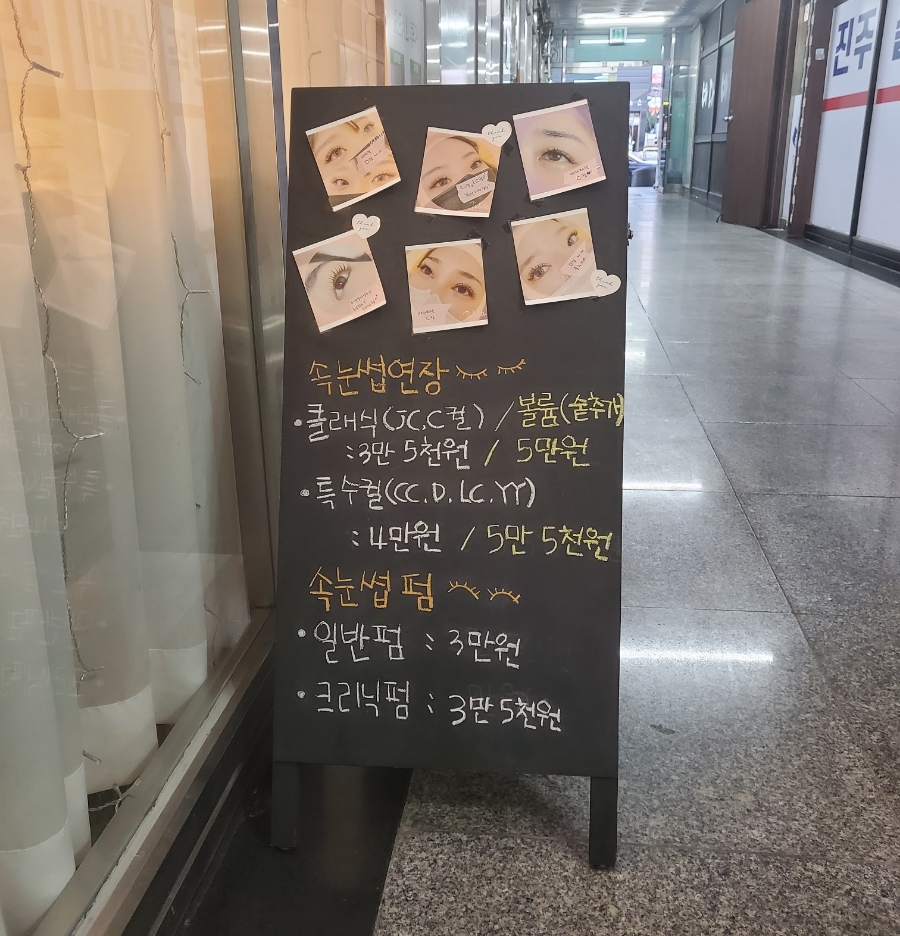 진주
Thank you
Thank you
Thank you
속눈썹연장
• 클래식(JC.C컬) / 볼륨(숱추가)
: 3만 5천원 / 5만원
• 특수컬(CC.D.LC.YY)
: 4만원 / 5만 5천원
속눈썹 펌
• 일반펌 : 3만원
• 크리닉펌 : 3만 5천원